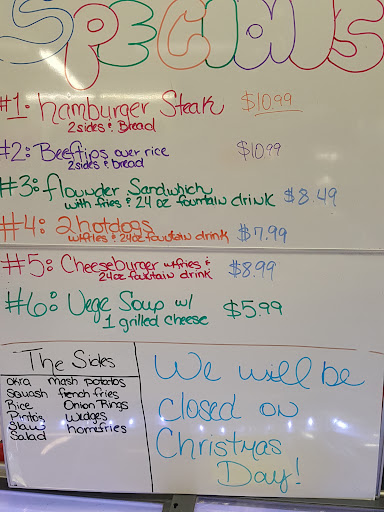 Specials
#1. hamburger Steak $10.99
2 sides & Bread
#2: Beeftips over rice $10.99
2 sides & bread
#3: flounder Sandwhich
with fries & 24 oz fountain drink $8.49
#4: 2 hotdogs
w/fries & 24oz fountain drink $7.99
#5: Cheeseburger w/fries &
24oz fountain drink $8.99
#6: Vege Soup w/
1 grilled cheese $5.99
The Sides
okra mash potatos
Squash french fries
Rice Onion Rings
Pintos Wedges
Slaw homefries
Salad
We will be
closed on
Christmas
Day!